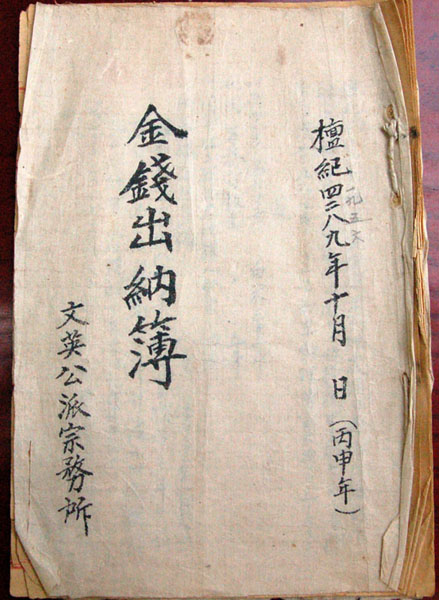 檀紀四二八九年十月 日(丙申年)
一九五六
金錢出納簿
文英公派宗務所